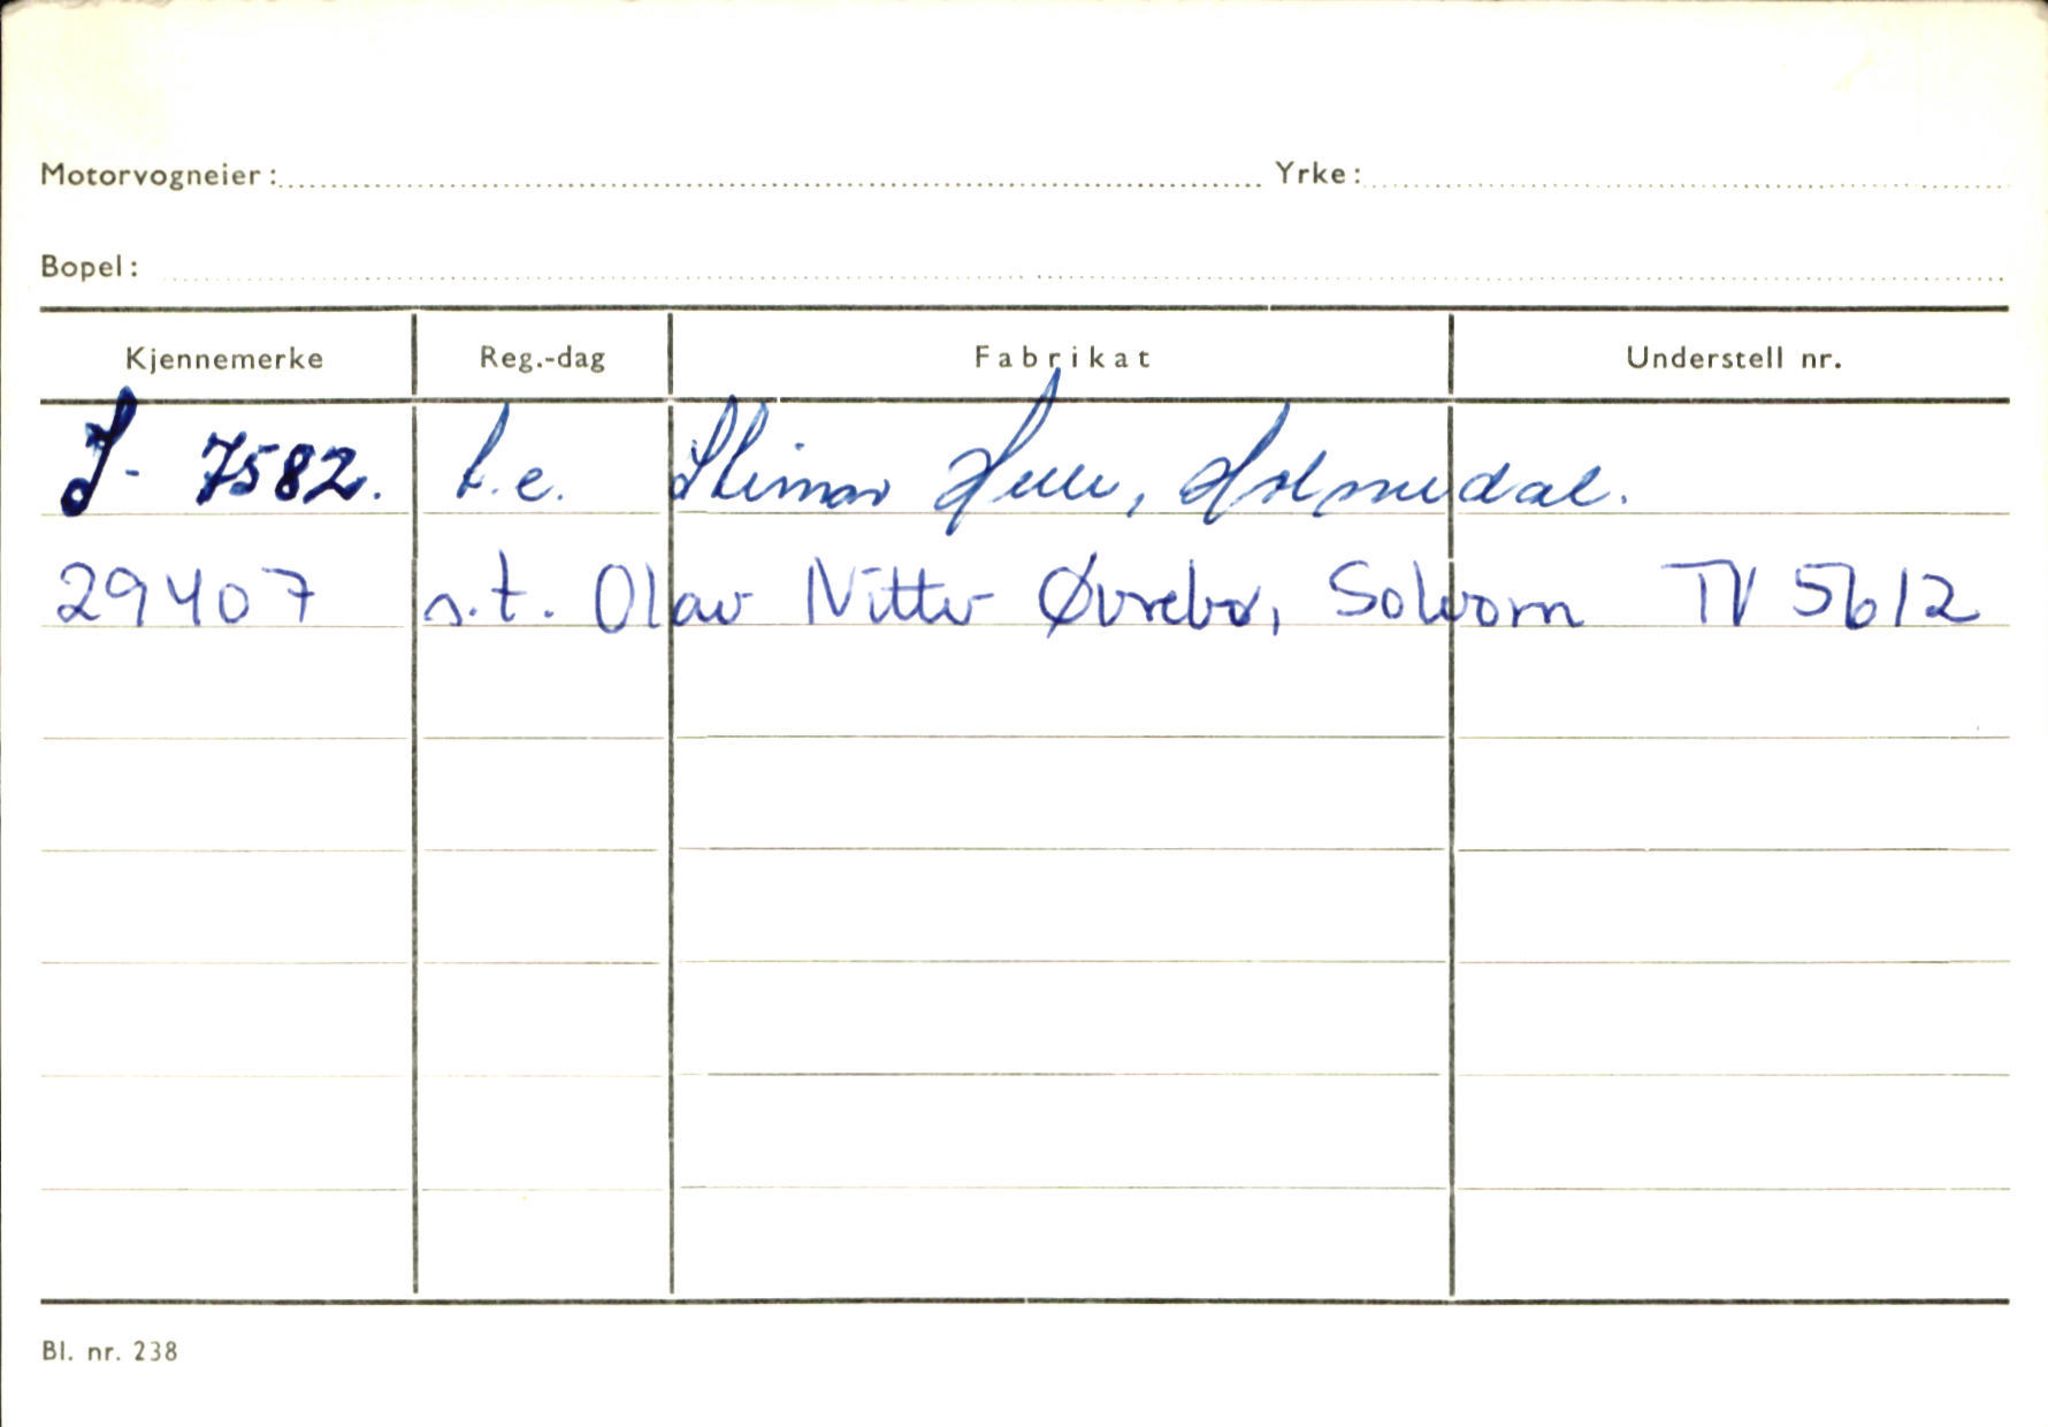 Motorvogneier: Yrke:
Bopel:
Kjennemerke Reg.-dag Fabrikat Understell nr.
S- 7582. t.e. Holmedal.
29407 s.t. Olav Nitter Øvrebø, Solvorn TV 5612
Bl. nr. 238